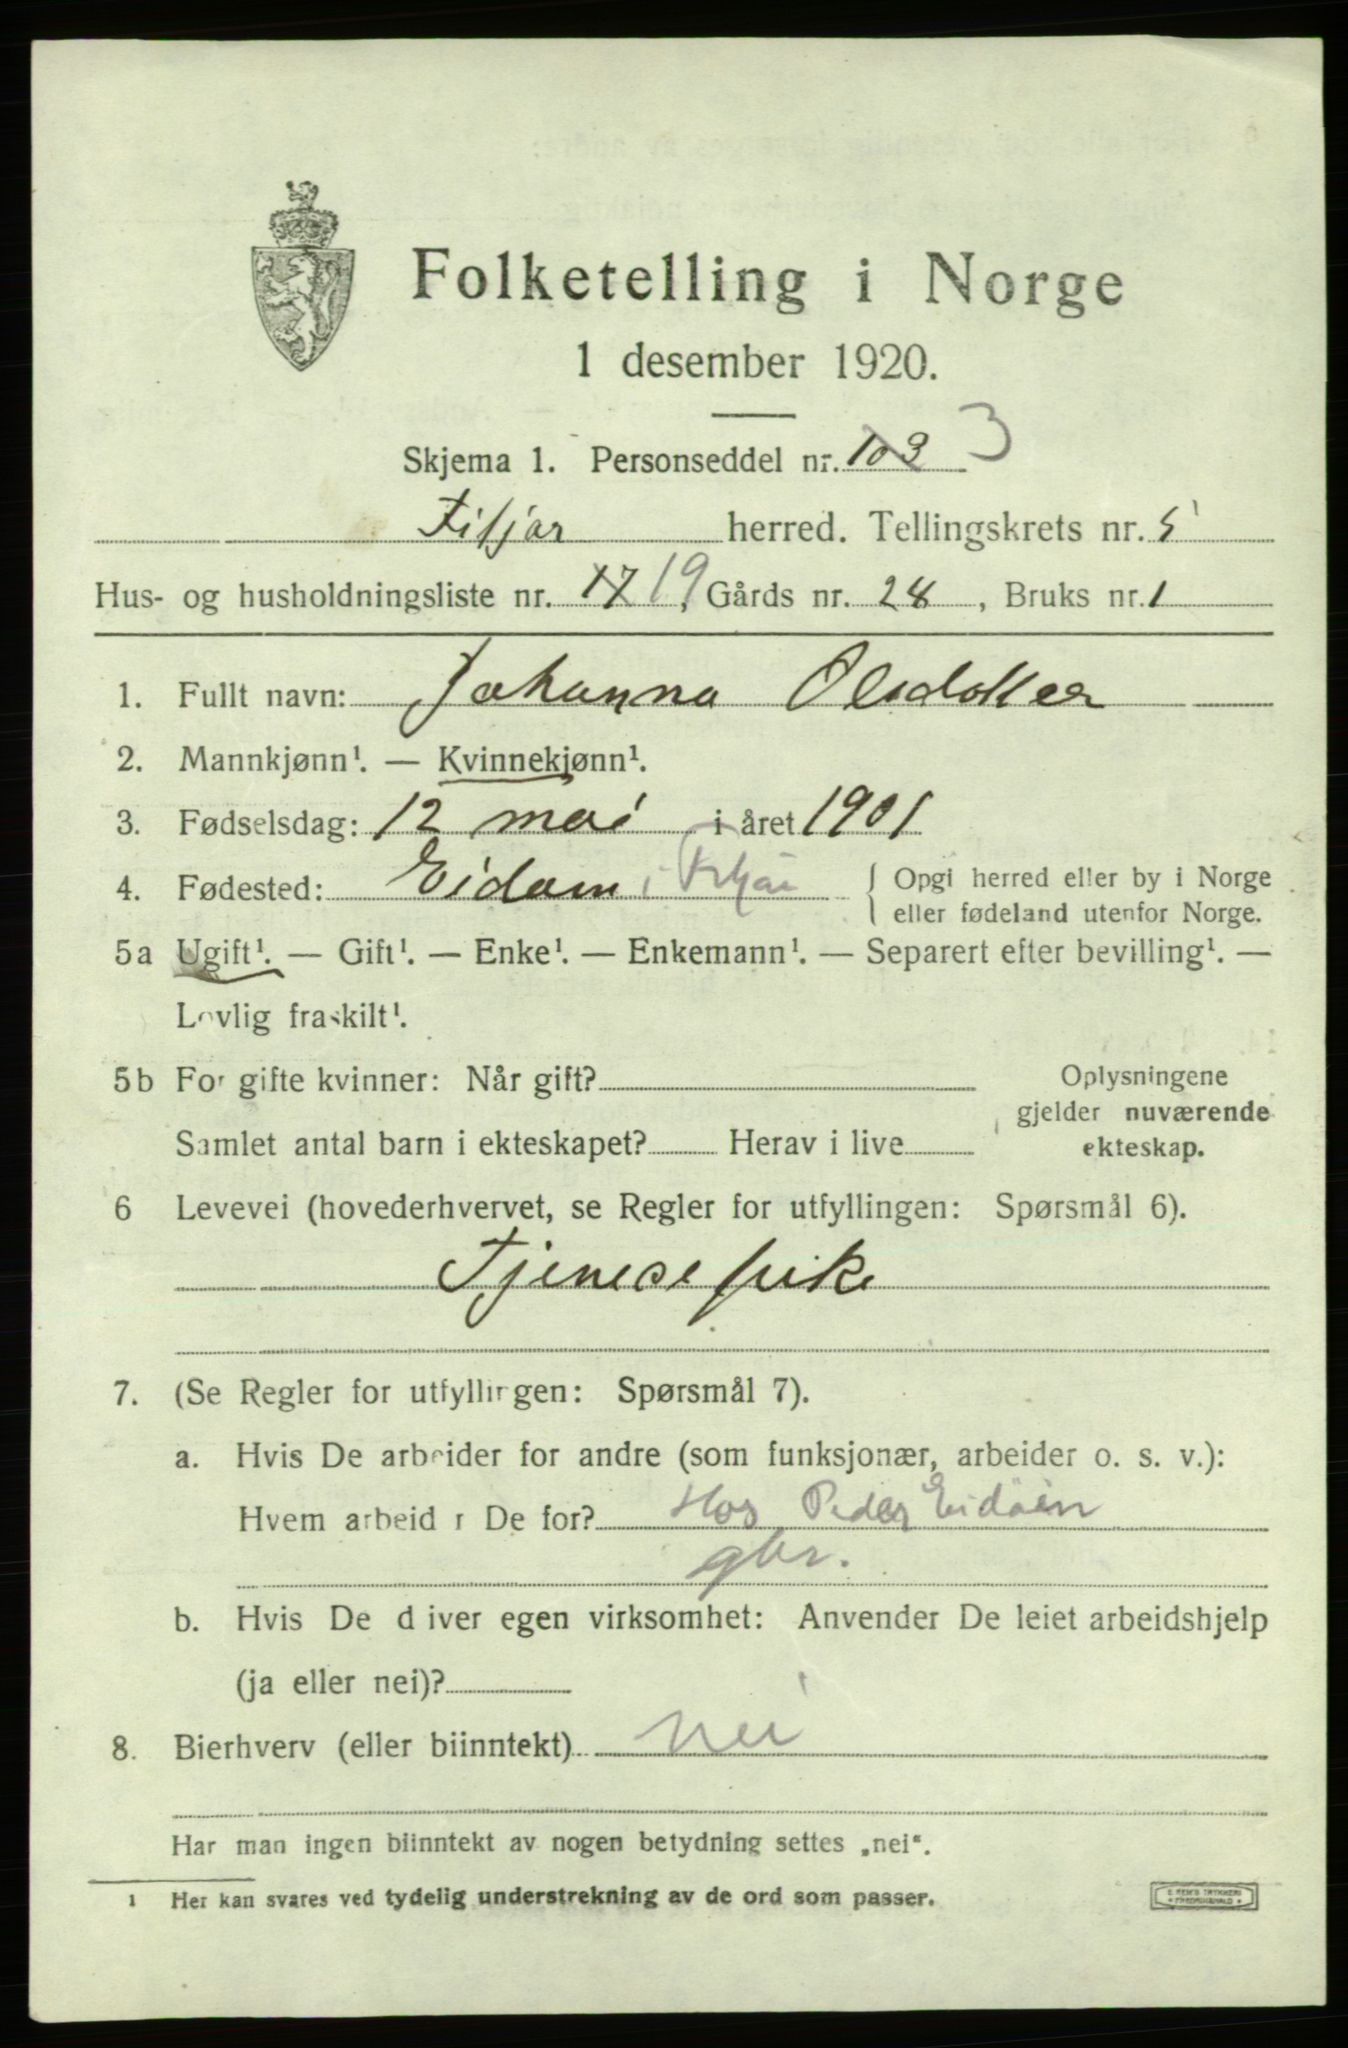 Folketelling i Norge
1 desember 1920.
Skjema 1. Personseddel nr. 103 3
Fitjar herred. Tellingskrets nr. 5
Hus- og husholdningsliste nr. 17 19, Gårds nr. 28, Bruks nr. 1
1. Fullt navn: Johanna Olsdotter
2. Mannkjønn¹. — Kvinnekjønn¹.
3. Fødselsdag: 12 mai i året 1901
4. Fødested: Eidøen i Fitjar { Opgi herred eller by i Norge
eller fødeland utenfor Norge.
5a Ugift¹. — Gift¹. — Enke¹. — Enkemann¹. — Separert efter bevilling¹. —
Lovlig fraskilt¹.
5b For gifte kvinner: Når gift? Oplysningene
gjelder nuværende
Samlet antal barn i ekteskapet? Herav i live ekteskap.
6 Levevei (hovederhvervet, se Regler for utfyllingen: Spørsmål 6).
Tjenesepike
7. (Se Regler for utfyllingen: Spørsmål 7).
a. Hvis De arbeider for andre (som funksjonær, arbeider o. s. v.):
Hvem arbeid r De for? Hos Peder Eidøen
gbr.
b. Hvis De d iver egen virksomhet: Anvender De leiet arbeidshjelp
(ja eller nei)?
8. Bierhverv (eller biinntekt) nei
Har man ingen biinntekt av nogen betydning settes „nei“.
1 Her kan svares ved tydelig understrekning av de ord som passer.